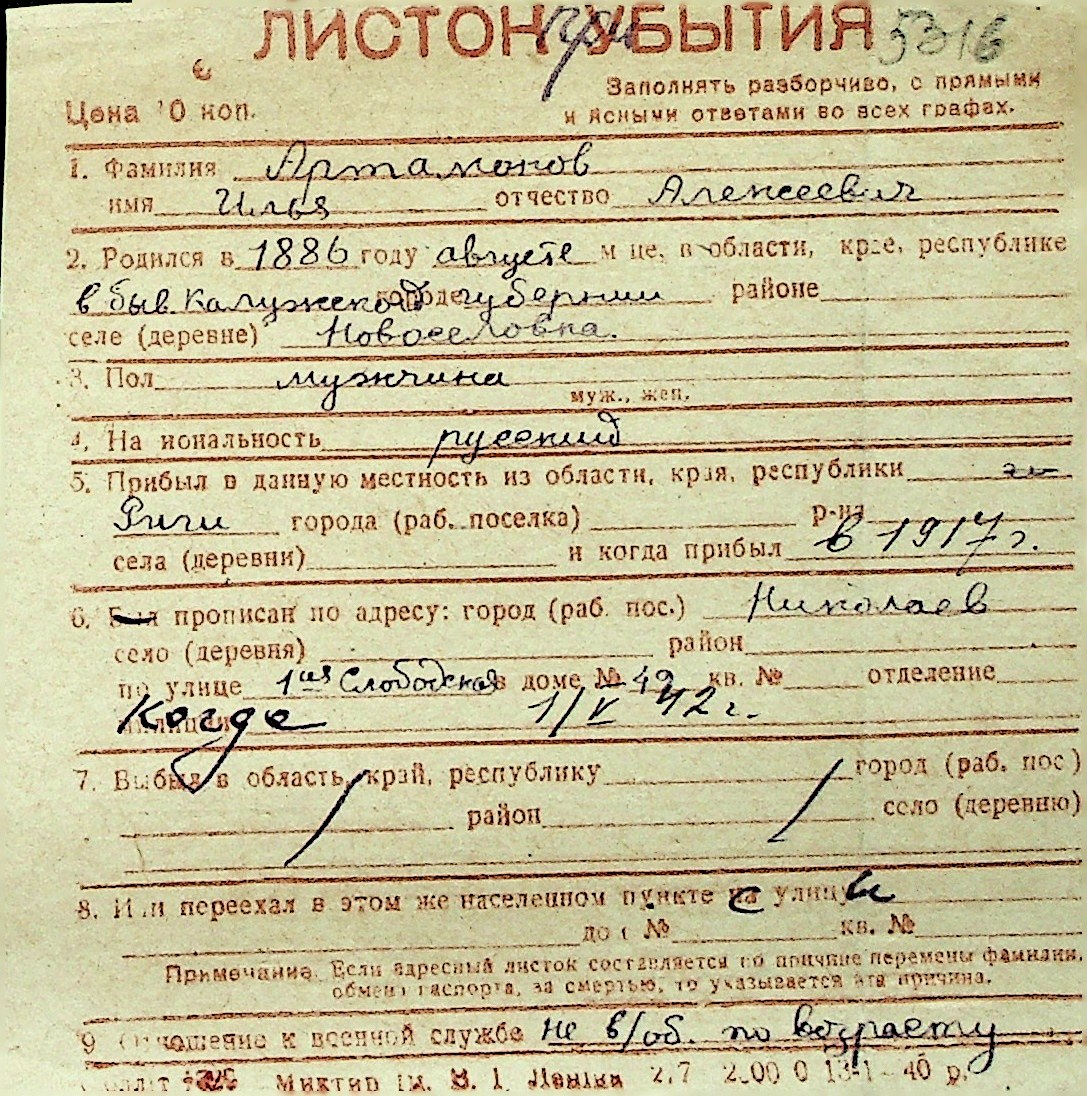 ЛИСТОК УБЫТИЯ 5316
Цена 10 коп.
Заполнять разборчиво, с прямыми
и ясными ответами во всех графах.
1. Фамилия Артамонов
имя Илья отчество Алексеевич
2. Родился в 1886 году августе м-це, в области, крае, республике
в быв. Калужской городе губернии районе
селе (деревне) Новоселовка.
3. Пол мужчина
муж., жен.
4. Национальность русский
5. Прибыл в данную местность из области, края, республики из
Риги города (раб. поселка) р-на
села (деревни) и когда прибыл в 1917 г.
6. Был прописан по адресу: город (раб. пос.) Николаев
село (деревня) район
по улице 1ая Слободская в доме № 49 кв. № отделение
милиции Когда 1/V 42 г.
7. Выбыл в область, край, республику город (раб. пос.)
район село (деревню)
8. Или переехал в этом же населенном пункте с улицы
дом № кв. №
Примечание. Если адресный листок составляется по причине перемены фамилии,
обмена паспорта, за смертью, то указывается эта причина.
9. Отношение к военной службе не в/об. по возрасту